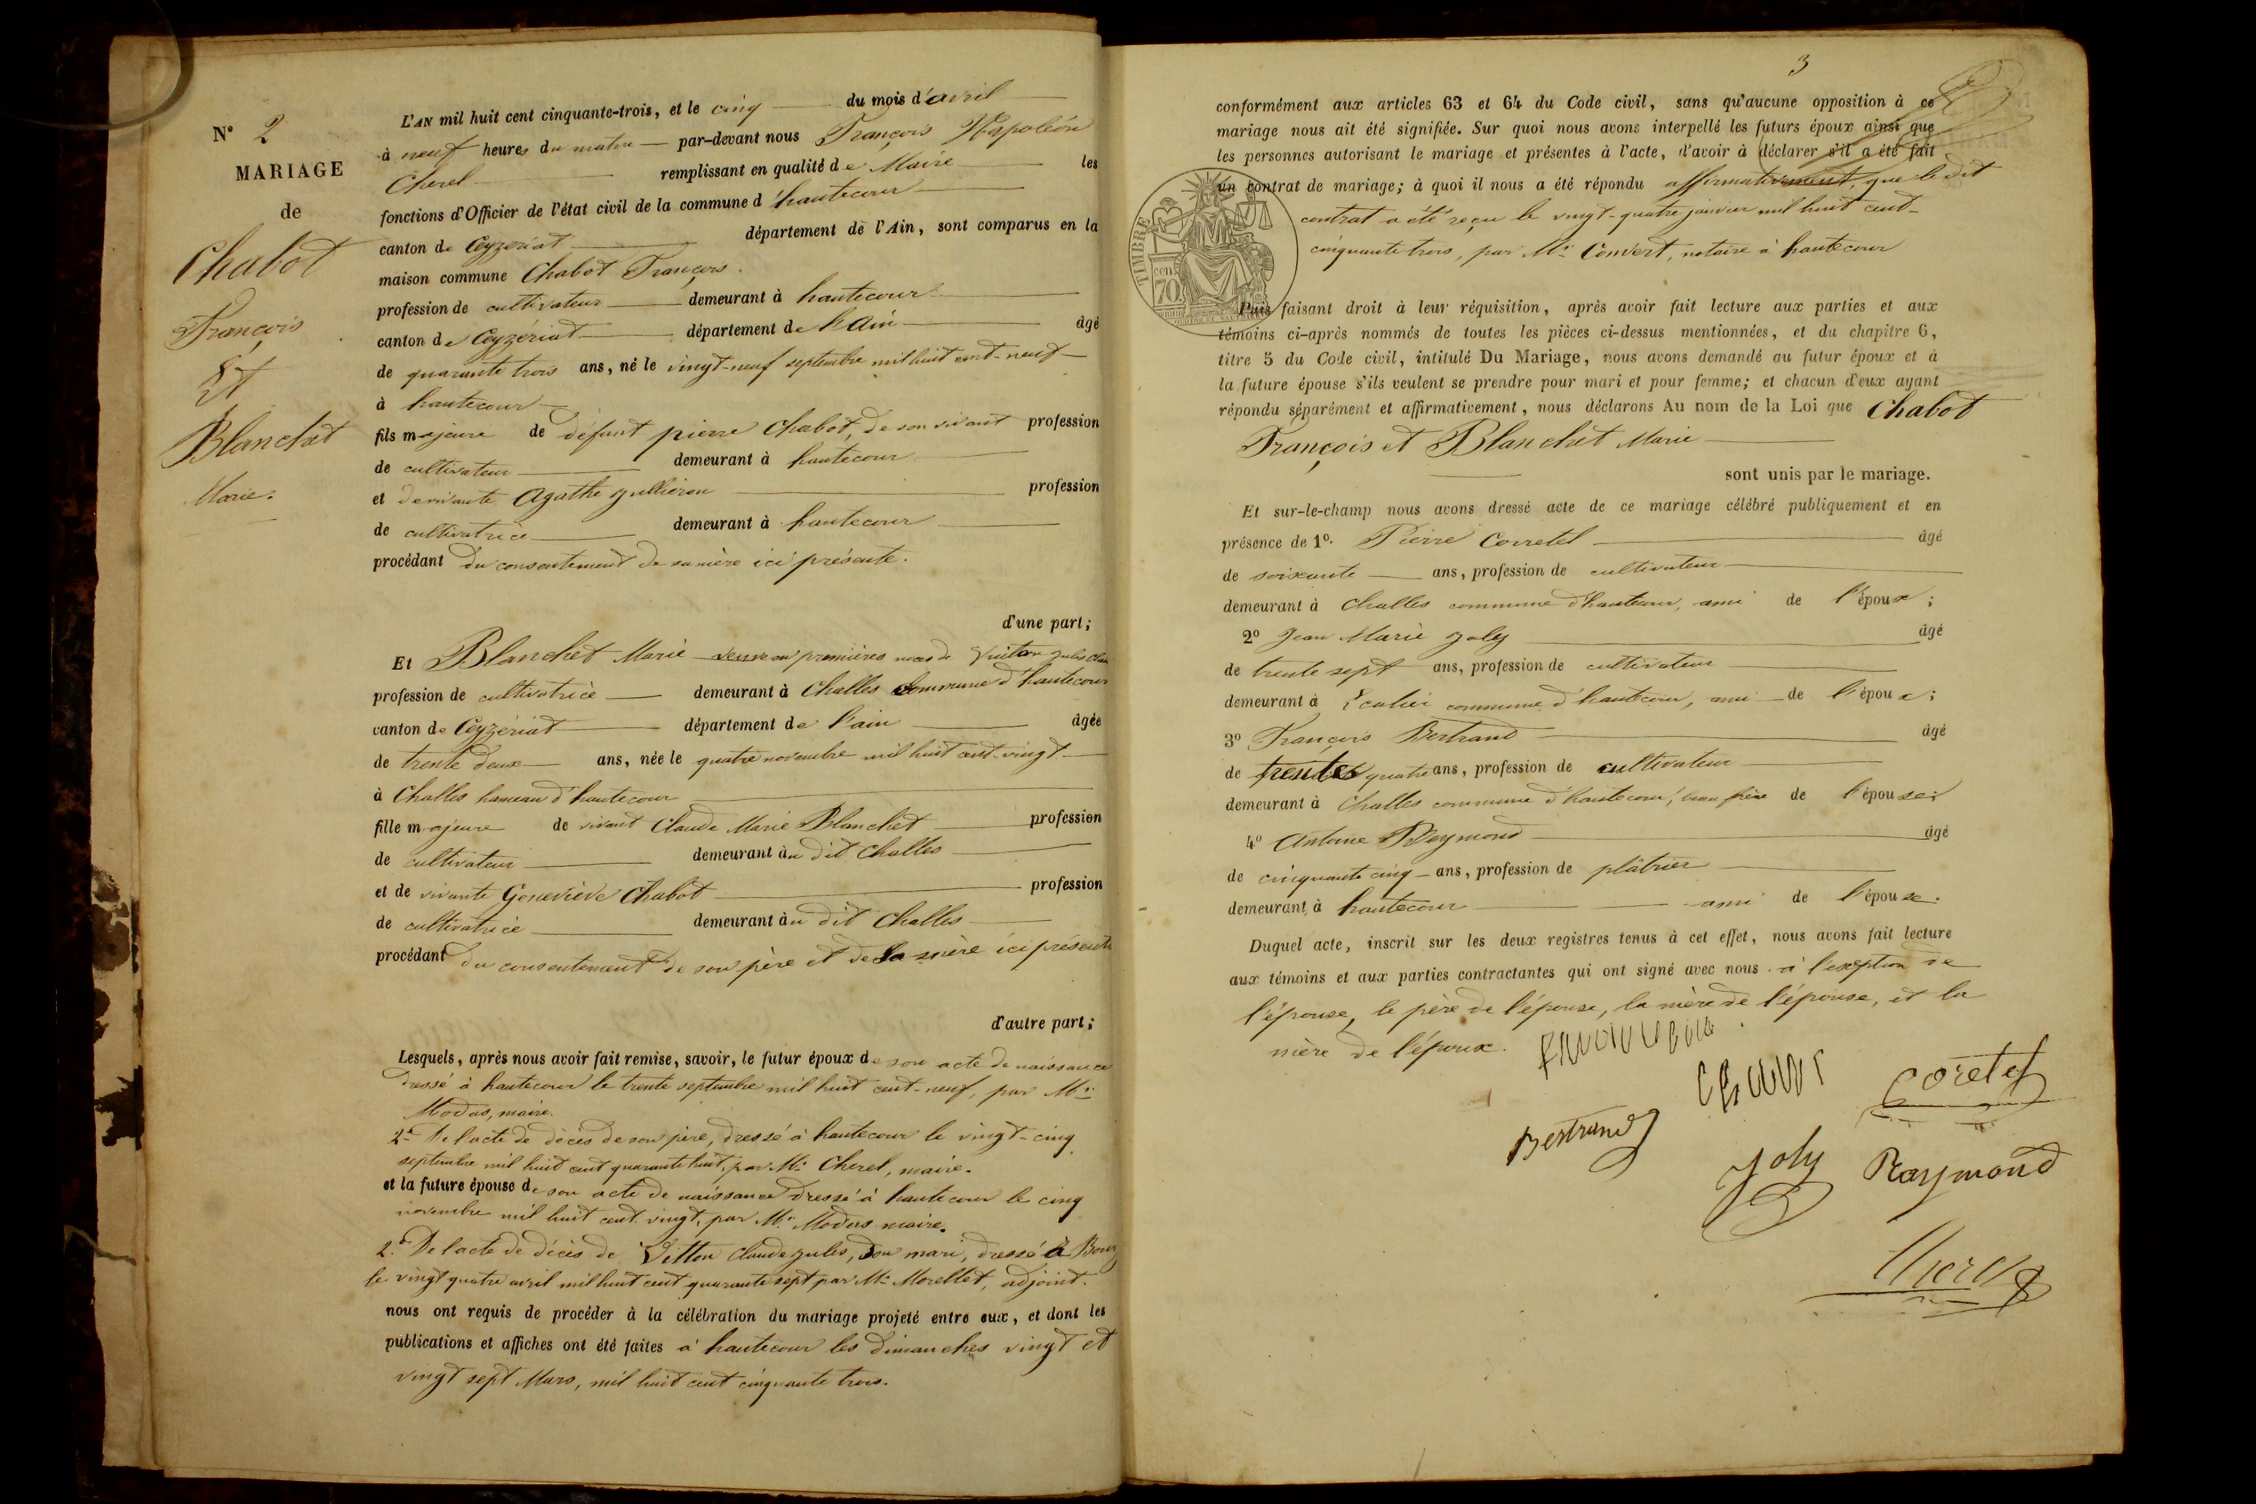 N° 2
MARIAGE
de
Chabot
François
Et
Blanchet
Marie.
L'AN mil huit cent cinquante-trois, et le cinq du mois d'avril
à neuf heures du matin par-devant nous François Napoléon
Cherel remplissant en qualité de Maire les
fonctions d'Officier de l'état civil de la commune d'hautecour
canton de Ceyzeriat département de l'Ain, sont comparus en la
maison commune Chabot François.
profession de cultivateur demeurant à hautecour
canton de Ceyzériat département de l'Ain âgé
de quarante trois ans, né le vingt-neuf septembre mil huit cent-neuf
à hautecour
fils majeure de défunt pierre Chabot, de son vivant profession
de cultivateur demeurant à hautecour
et de vivante Agathe profession
de cultivatrice demeurant à hautecour
procédant du consentement de sa mère ici présente.
d'une part;
Et Blanchet Marie veuve en premières noces de
profession de cultivatrice demeurant à Challes Commune d'hautecour
canton de Ceyzériat département de l'ain âgée
de trente deux ans, née le quatre novembre mil huit cent-vingt
à Challes hameau d'hautecour
fille majeure de vivant Claude Marie Blanchet profession
de cultivateur demeurant au dit Challes
et de vivante Geneviève Chabot profession
de cultivatrice demeurant au dit Challes
procédant du consentement de son père et de Sa mère ici présents
d'autre part;
Lesquels, après nous avoir fait remise, savoir, le futur époux de son acte de naissance
dressé à hautecour le trente septembre mil huit cent-neuf, par Mr.
Modas, maire.
2° De l'acte de décès de son père, dressé à hautecour le vingt-cinq
septembre mil huit cent quarante huit, par Mr. Cherel, maire.
et la future épouse de son acte de naissance dressé à hautecour le cinq
novembre mil huit cent vingt, par Mr. Modas maire.
2° De l'acte de décès de Claude Jules, Son mari, dressé à Bourg
le vingt quatre avril mil huit cent quarante sept par Mr. Morellet, adjoint.
nous ont requis de procéder à la célébration du mariage projeté entre eux, et dont les
publications et affiches ont été faites à hautecour les dimanches vingt et
vingt sept Mars, mil huit cent cinquante trois.
3
conformément aux articles 63 et 64 du Code civil, sans qu'aucune opposition à ce
mariage nous ait été signifiée. Sur quoi nous avons interpellé les futurs époux ainsi que
les personnes autorisant le mariage et présentes à l'acte, d'avoir à déclarer s'il a été fait
un contrat de mariage; à quoi il nous a été répondu affirmativement, que le dit
contrat a été reçu le vingt-quatre janvier mil huit cent-
cinquante trois, par Mr. Convert, notaire à hautecour
TIMBRE
70
Puis faisant droit à leur réquisition, après avoir fait lecture aux parties et aux
témoins ci-après nommés de toutes les pièces ci-dessus mentionnées, et du chapitre 6,
titre 5 du Code civil, intitulé Du Mariage, nous avons demandé au futur époux et à
la future épouse s'ils veulent se prendre pour mari et pour femme; et chacun d'eux ayant
répondu séparément et affirmativement, nous déclarons Au nom de la Loi que Chabot
François et Blanchet Marie
sont unis par le mariage.
Et sur-le-champ nous avons dressé acte de ce mariage célébré publiquement et en
présence de 1° Pierre Corretel âgé
de soixante ans, profession de cultivateur
demeurant à Challes commune d'hautecour, ami de l'époux;
2° Jean Marie Joly âgé
de trente sept ans, profession de cultivateur
demeurant à commune d'hautecour, ami de l'époux;
3° François Bertrand âgé
de trente quatre ans, profession de cultivateur
demeurant à Challes commune d'hautecour, beau frère de l'épouse;
4° Antoine Reymond âgé
de cinquante cinq ans, profession de plâtrier
demeurant à hautecour ami de l'épouse.
Duquel acte, inscrit sur les deux registres tenus à cet effet, nous avons fait lecture
aux témoins et aux parties contractantes qui ont signé avec nous à l'exeption de
l'épouse, le père de l'épouse, la mère de l'épouse, et la
mère de l'époux.
Coretel
Bertrand
Joly Raymond
Cherel